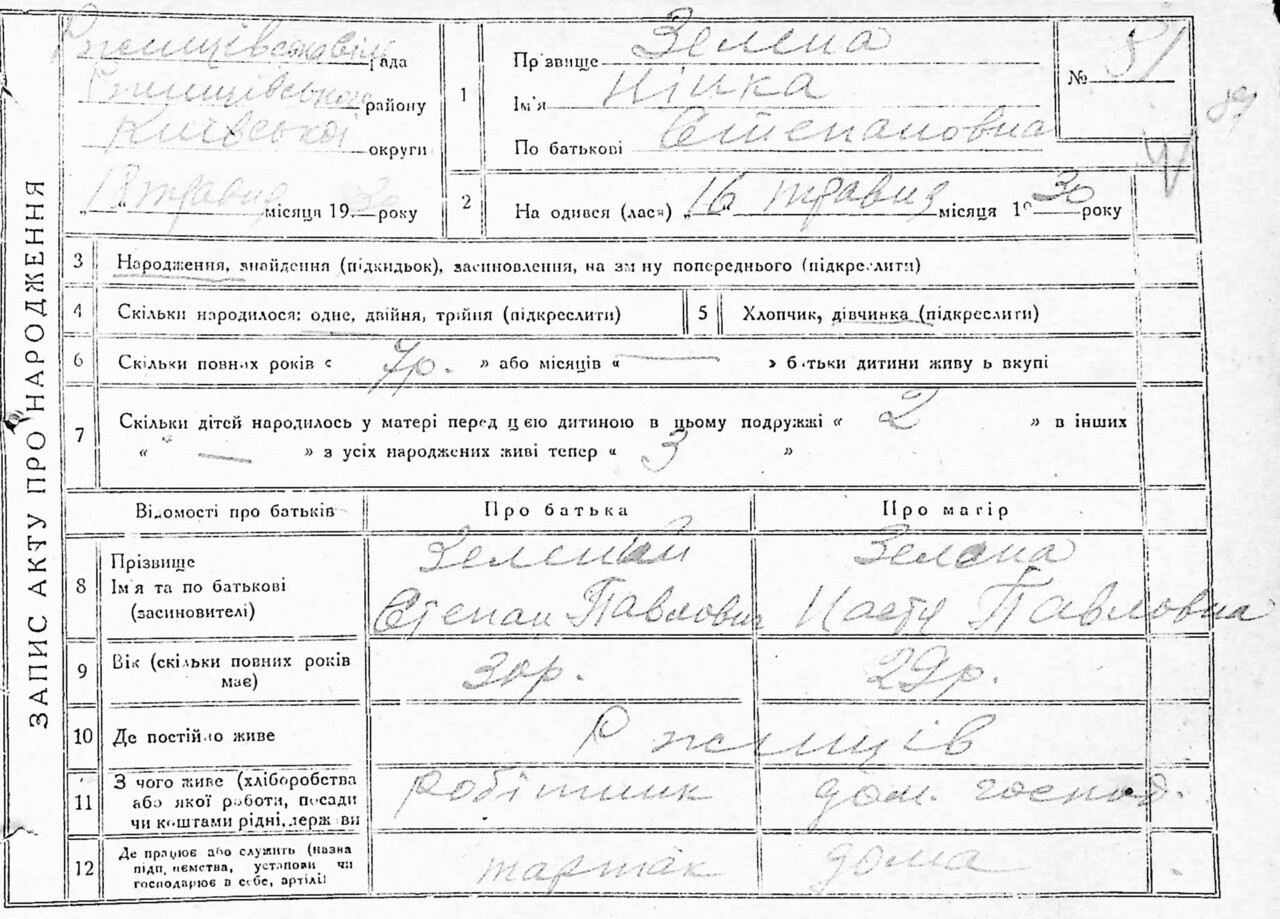 ЗАПИС АКТУ ПРО НАРОДЖЕННЯ
Ржищівська рада
Ржищівського району
Київської округи
„18“ травня місяця 1930 року
1
Прізвище Зелена
Ім'я Нінка
По батькові Степановна
№ 81
81
2
На одився (лася) „16“ травня місяця 1930 року
3 Народження, знайдення (підкидьок), засиновлення, на зм ну попереднього (підкреслити)
4 Скільки народилося: одне, двійня, трійня (підкреслити) 5 Хлопчик, дівчинка (підкреслиги)
6 Скільки повних років « 7р. » або місяців “ — » батьки дитини живу ь вкупі
7 Скільки дітей народилось у матері перед цією дитиною в цьому подружжі « 2 » в інших
« — » з усіх народжених живі тепер “ 3 »
Відомості про батьків Про батька Про матір
8 Прізвище
Ім'я та по батькові
(засиновителі)
Зелений
Степан Павлович
Зелена
Настя Павловна
9 Вік (скільки повних років
має)
30р. 29р.
10 Де постійно живе Ржищів
11 З чого живе (хліборобства
або якої роботи, посади
чи коштами рідні, держ ви
робітник дом. господ.
12 Де працює або служить (назна
підп, немства, установи чи
господарює в себе, артілі)
тартак дома